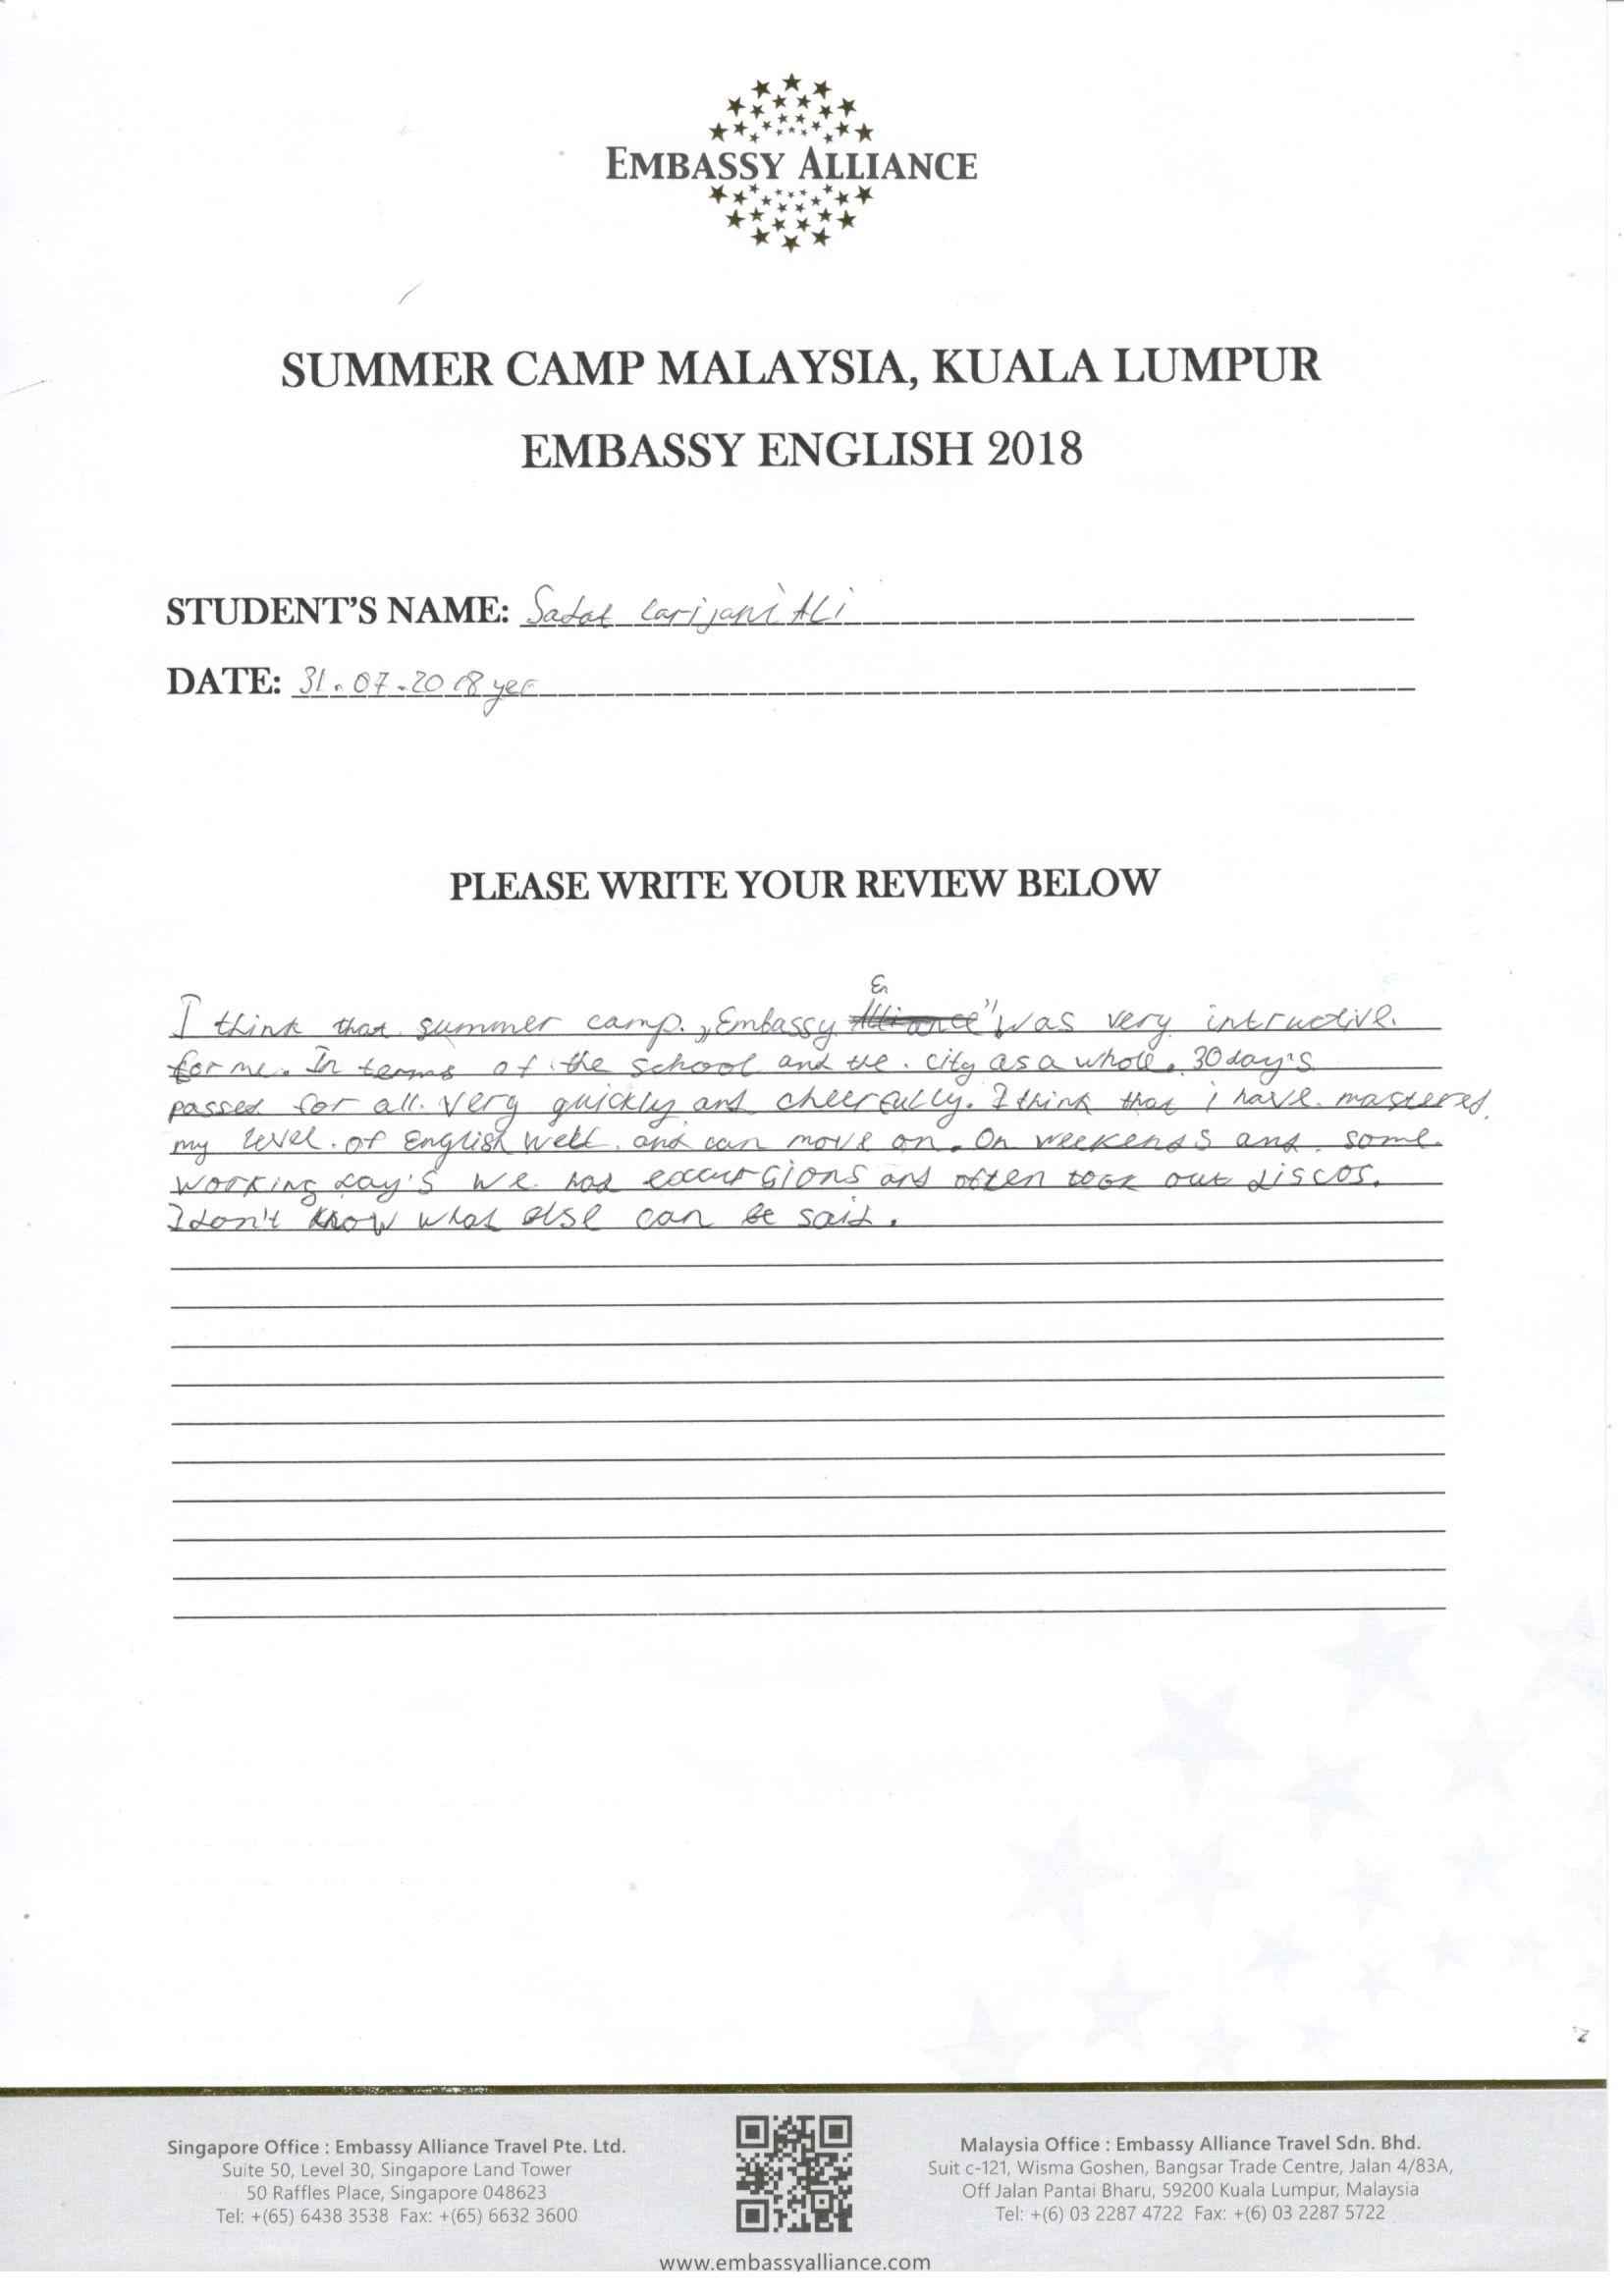 EMBASSY ALLIANCE
SUMMER CAMP MALAYSIA, KUALA LUMPUR
EMBASSY ENGLISH 2018
STUDENT'S NAME: Sadat Larijani Ali
DATE: 31.07.2018 yer
PLEASE WRITE YOUR REVIEW BELOW
En
I think that summer camp „Embassy Alliance" was very intructive.
for me. In terms of the school and the city as a whole. 30 day's
passed for all very quickly and cheerfully. I think that i have mastered
my level of English well and can move on. On weekends and some
working day's we had excursions and often took out discos.
I don't know what else can be said.
Singapore Office : Embassy Alliance Travel Pte. Ltd.
Suite 50, Level 30, Singapore Land Tower
50 Raffles Place, Singapore 048623
Tel: +(65) 6438 3538 Fax: +(65) 6632 3600
Malaysia Office : Embassy Alliance Travel Sdn. Bhd.
Suit c-121, Wisma Goshen, Bangsar Trade Centre, Jalan 4/83A,
Off Jalan Pantai Bharu, 59200 Kuala Lumpur, Malaysia
Tel: +(6) 03 2287 4722 Fax: +(6) 03 2287 5722
www.embassyalliance.com